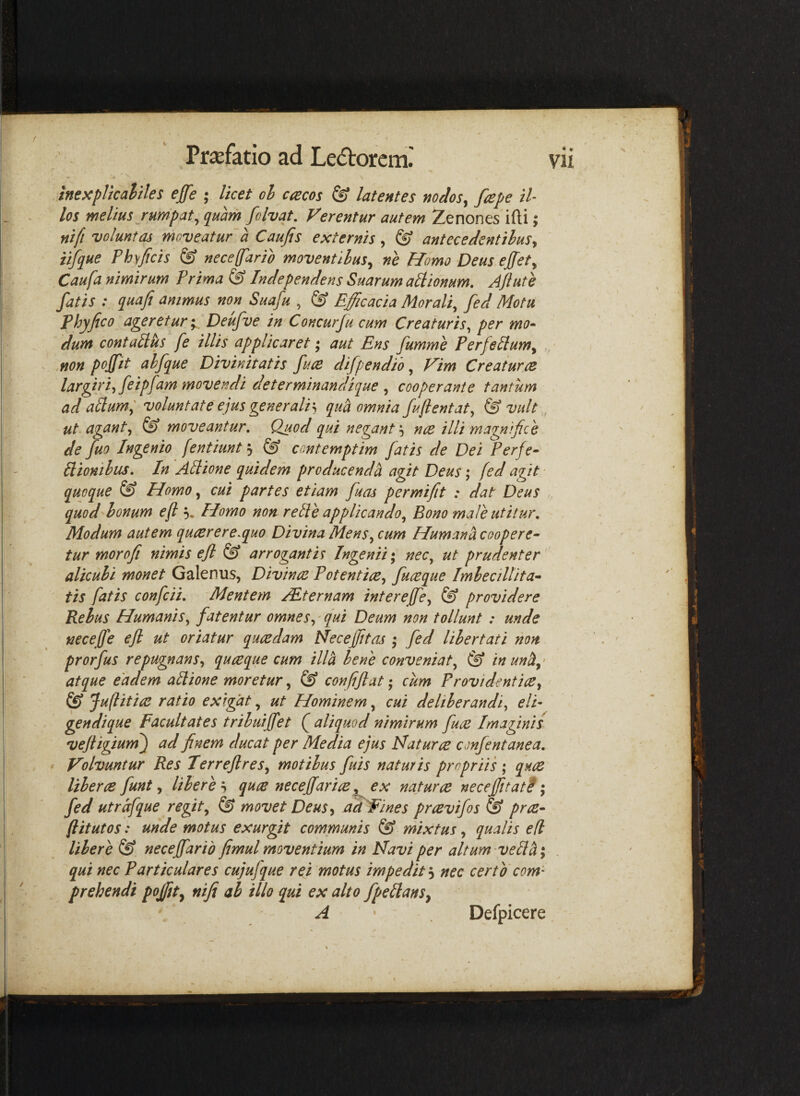 Præfatio ad Lectorem. vii
inexplicabiles eſſe ; licet ob cæcos & latentes nodos, ſæpe il-
los melius rumpat, quàm ſolvat. Verentur autem Zenones iſti ;
niſi voluntas moveatur à Cauſis externis, & antecedentibus,
iiſque Phyſicis & neceſſariò moventibus, nè Homo Deus eſſet,
Cauſa nimirum Prima & Independens Suarum actionum. Aſtutè
ſatis : quaſi animus non Suaſu , & Efficacia Morali, ſed Motu
Phyſico ageretur ; Deúſve in Concurſu cum Creaturis, per mo-
dum contactûs ſe illis applicaret ; aut Ens ſummè Perfectum,
non poſſit abſque Divinitatis ſuæ diſpendio, Vim Creaturæ
largiri, ſeipſam movendi determinandíque , cooperante tantùm
ad actum, voluntate ejus generali ; quâ omnia ſuſtentat, & vult
ut agant, & moveantur. Quod qui negant ; næ illi magnificè
de ſuo Ingenio ſentiunt ; & contemptim ſatis de Dei Perfe-
ctionibus. In Actione quidem producendâ agit Deus ; ſed agit
quoque & Homo, cui partes etiam ſuas permiſit : dat Deus
quod bonum eſt ; Homo non rectè applicando, Bono malè utitur.
Modum autem quærere quo Divina Mens, cum Humanâ coopere-
tur moroſi nimis eſt & arrogantis Ingenii ; nec, ut prudenter
alicubi monet Galenus, Divinæ Potentiæ, ſuæque Imbecillita-
tis ſatis conſcii. Mentem Æternam intereſſe, & providere
Rebus Humanis, fatentur omnes, qui Deum non tollunt : unde
neceſſe eſt ut oriatur quædam Neceſſitas ; ſed libertati non
prorſus repugnans, quæque cum illâ benè conveniat, & in unâ,
atque eâdem actione moretur, & conſiſtat ; cùm Providentiæ,
& Juſtitiæ ratio exigat, ut Hominem, cui deliberandi, eli-
gendique Facultates tribuiſſet ( aliquod nimirum ſuæ Imaginis
veſtigium) ad finem ducat per Media ejus Naturæ conſentanea.
Volvuntur Res Terreſtres, motibus ſuis naturis propriis ; quæ
liberæ ſunt, liberè ; quæ neceſſariæ, ex naturæ neceſſitate ;
ſed utráſque regit, & movet Deus, ad Fines præviſos & præ-
ſtitutos : unde motus exurgit communis & mixtus, qualis eſt
liberè & neceſſariò ſimul moventium in Navi per altum vectâ ;
qui nec Particulares cujuſque rei motus impedit ; nec certò com-
prehendi poſſit, niſi ab illo qui ex alto ſpectans,
A Deſpicere